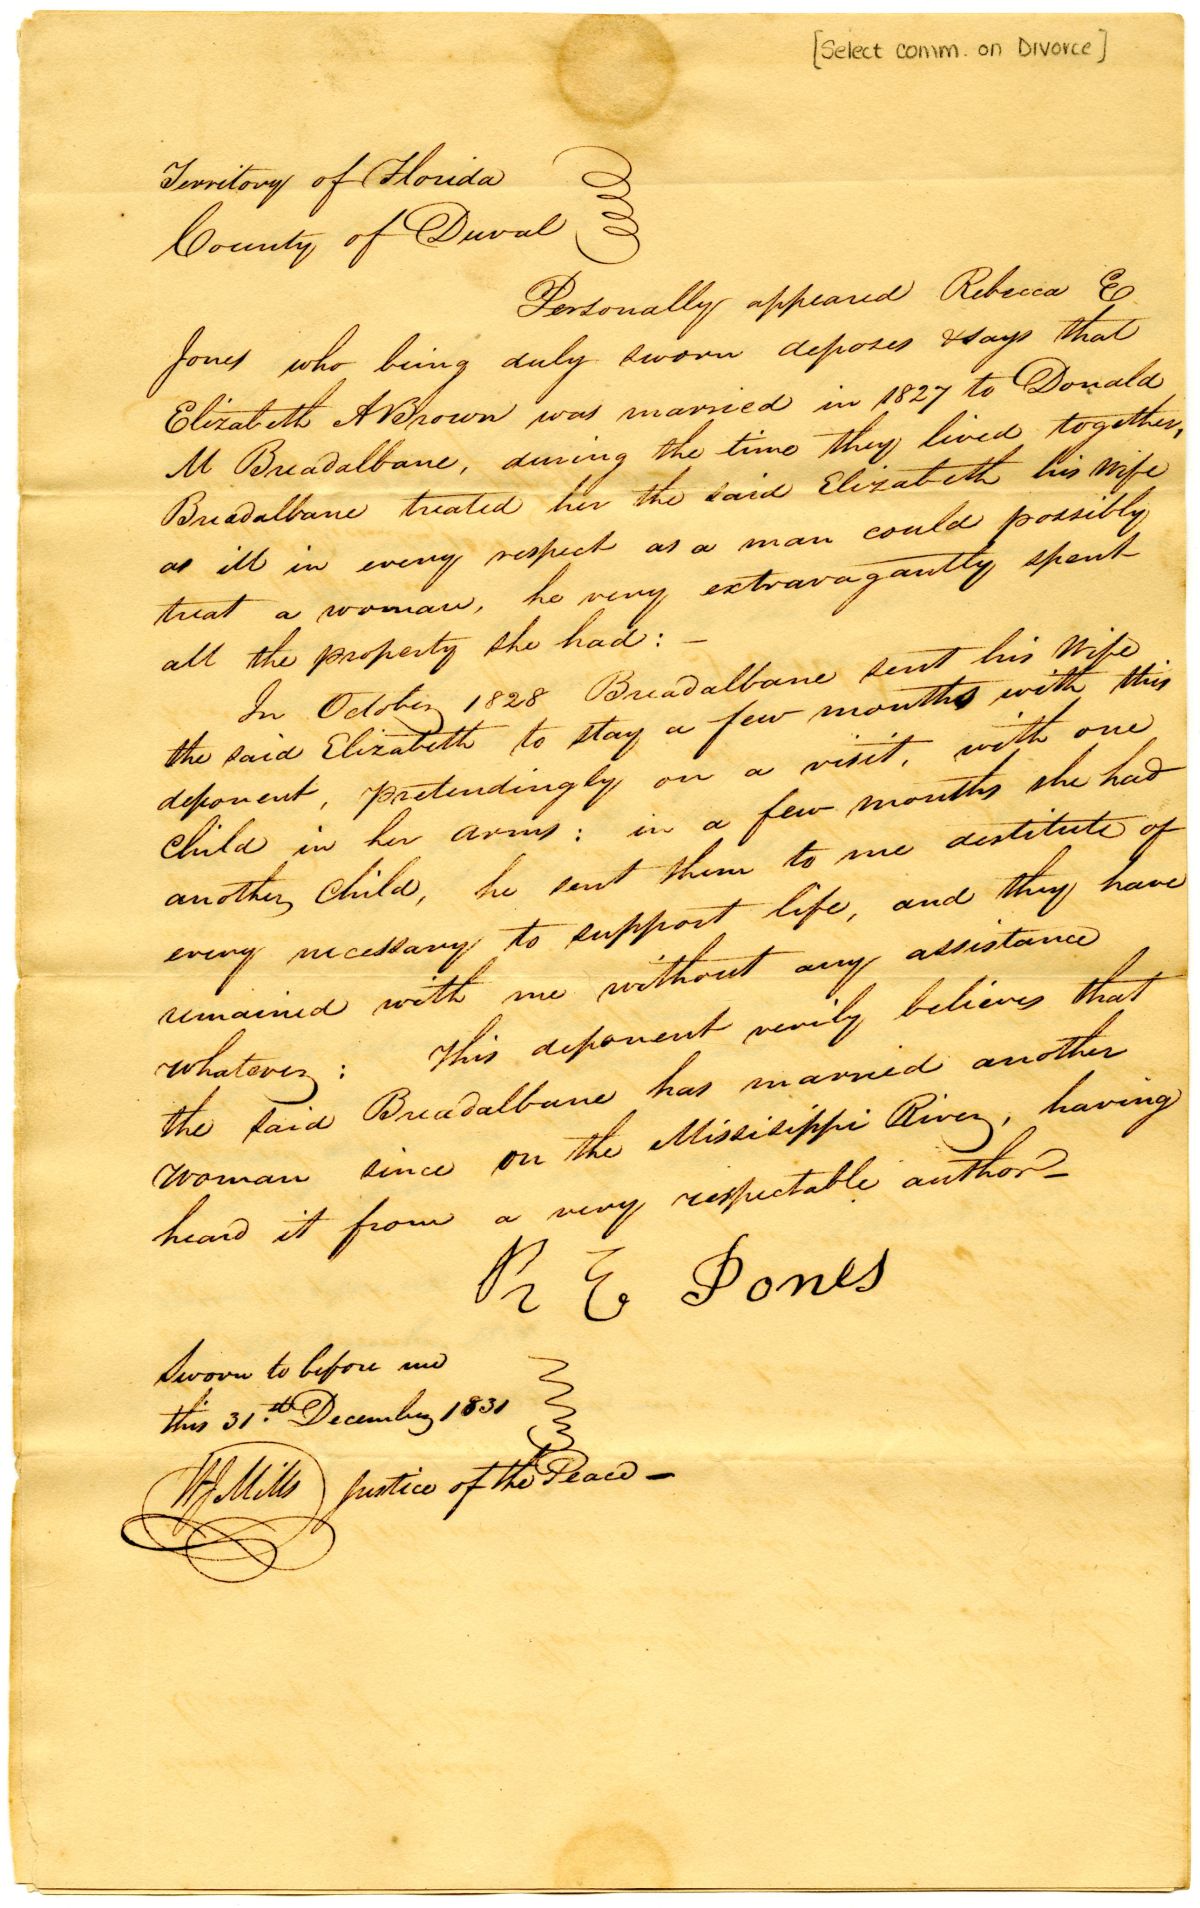 [Select comm. on Divorce]
Territory of Florida
County of Duval
Personally appeared Rebecca E
Jones who being duly sworn deposes & says that
Elizabeth A Brown was married in 1827 to Donald
M Breadalbane, during the time they lived together,
Breadalbane treated her the said Elizabeth his Wife
as ill in every respect as a man could possibly
treat a woman, he very extravagantly spent
all the property she had: –
In October 1828 Breadalbane sent his Wife
the said Elizabeth to stay a few months with this
deponent, pretendingly on a visit, with one
Child in her arms: in a few months she had
another Child, he sent them to me destitute of
every necessary to support life, and they have
remained with me without any assistance
whatever: This deponent verily believes that
the said Breadalbane has married another
woman since on the Missisippi River, having
heard it from a very respectable author –
R E Jones
Sworn to before me
this 31.st December 1831
W J Mills Justice of the Peace –